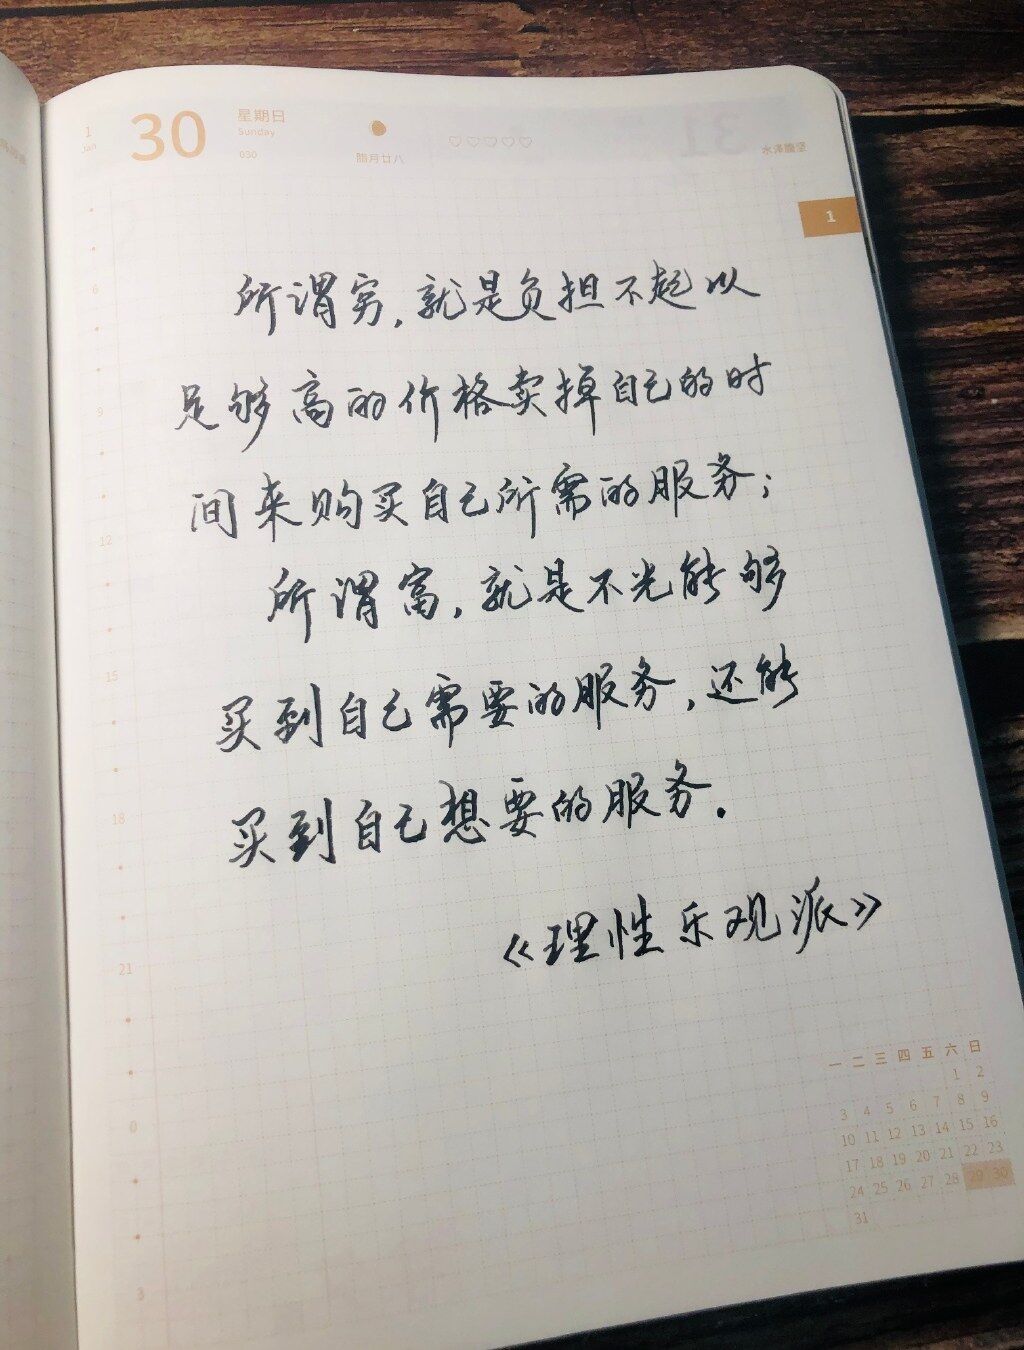 1
Jan
30
星期日
Sunday
030
腊月廿八
1
所谓穷,就是负担不起以
足够高的价格卖掉自己的时
间来购买自己所需的服务;
所谓富,就是不光能够
买到自己需要的服务,还能
买到自己想要的服务.
《理性乐观派》
6
9
12
15
18
21
0
3
一 二 三 四 五 六 日
1 2
3 4 5 6 7 8 9
10 11 12 13 14 15 16
17 18 19 20 21 22 23
24 25 26 27 28 29 30
31